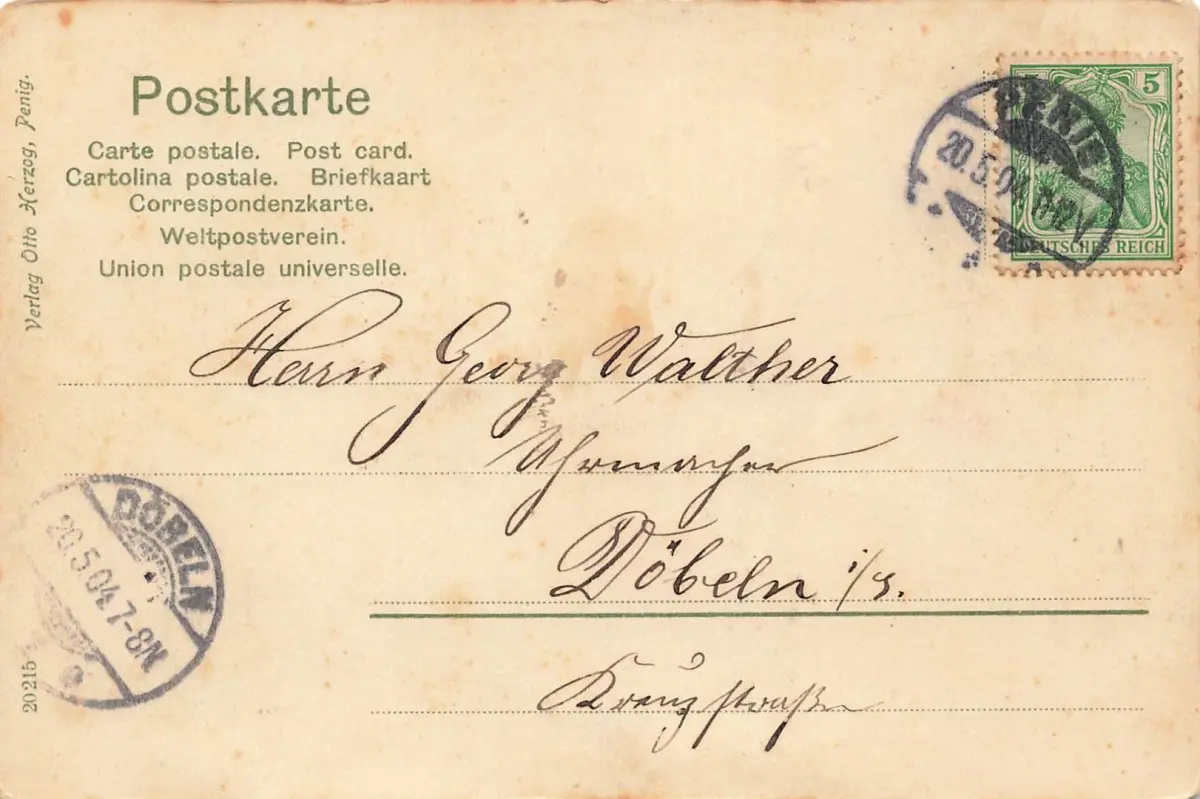 Postkarte
Carte postale. Post card.
Cartolina postale. Briefkaart
Correspondenzkarte.
Weltpostverein.
Union postale universelle.
Verlag Otto Herzog, Penig.
5
DEUTSCHES REICH
PENIG
20.5.04. 11-12 V
Herrn Georg Walther
Uhrmacher
Döbeln i/S.
Kreuzstraße
DÖBELN
20.5.04. 7-8N.
20215